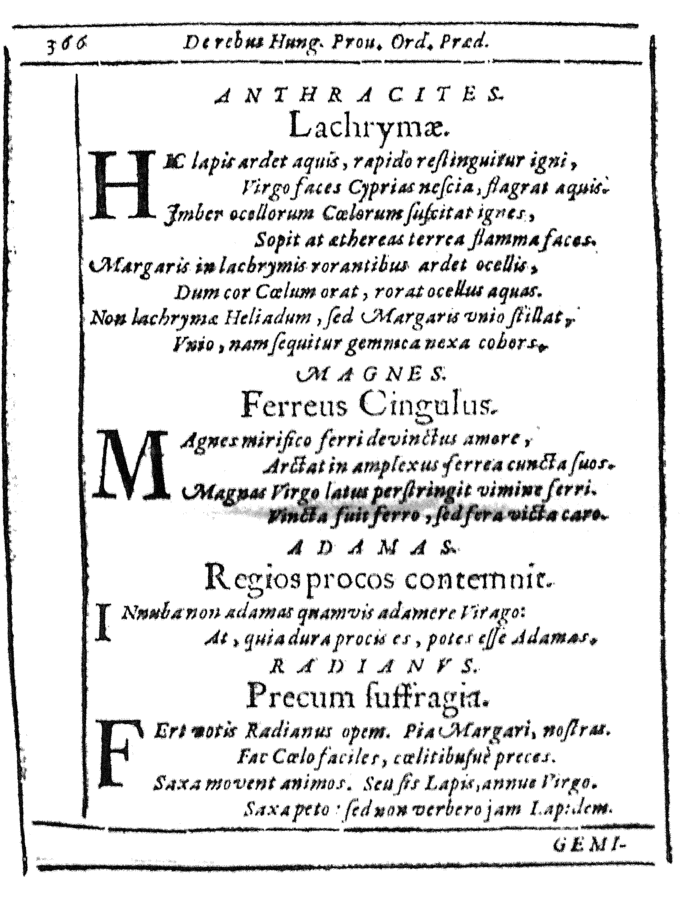 366 De rebus Hung. Prou. Ord. Præd.
ANTHRACITES.
Lachrymæ.
HIC lapis ardet aquis, rapido reſtinguitur igni,
Virgo faces Cyprias neſcia, flagrat aquis.
Imber ocellorum Cœlorum ſuſcitat ignes,
Sopit at æthereas terrea flamma faces.
Margaris in lachrymis rorantibus ardet ocellis,
Dum cor Cœlum orat, rorat ocellus aquas.
Non lachrymæ Heliadum, ſed Margaris vnio ſtillat,
Vnio, nam ſequitur gemmea nexa cohors.
MAGNES.
Ferreus Cingulus.
MAgnes mirifico ferri devinctus amore,
Arctat in amplexus ferrea cuncta ſuos.
Magnas Virgo latus perſtringit vimine ferri.
Vincta fuit ferro, ſed fera victa caro.
ADAMAS.
Regios procos contemnit.
INnuba non adamas quamvis adamere Virago:
At, quia dura procis es, potes eſſe Adamas.
RADIANVS.
Precum ſuffragia.
FErt votis Radianus opem. Pia Margari, noſtras.
Fac Cœlo faciles, cœlitibuſuè preces.
Saxa movent animos. Seu ſis Lapis, annue Virgo.
Saxa peto: ſed non verbero jam Lapidem.
GEMI-